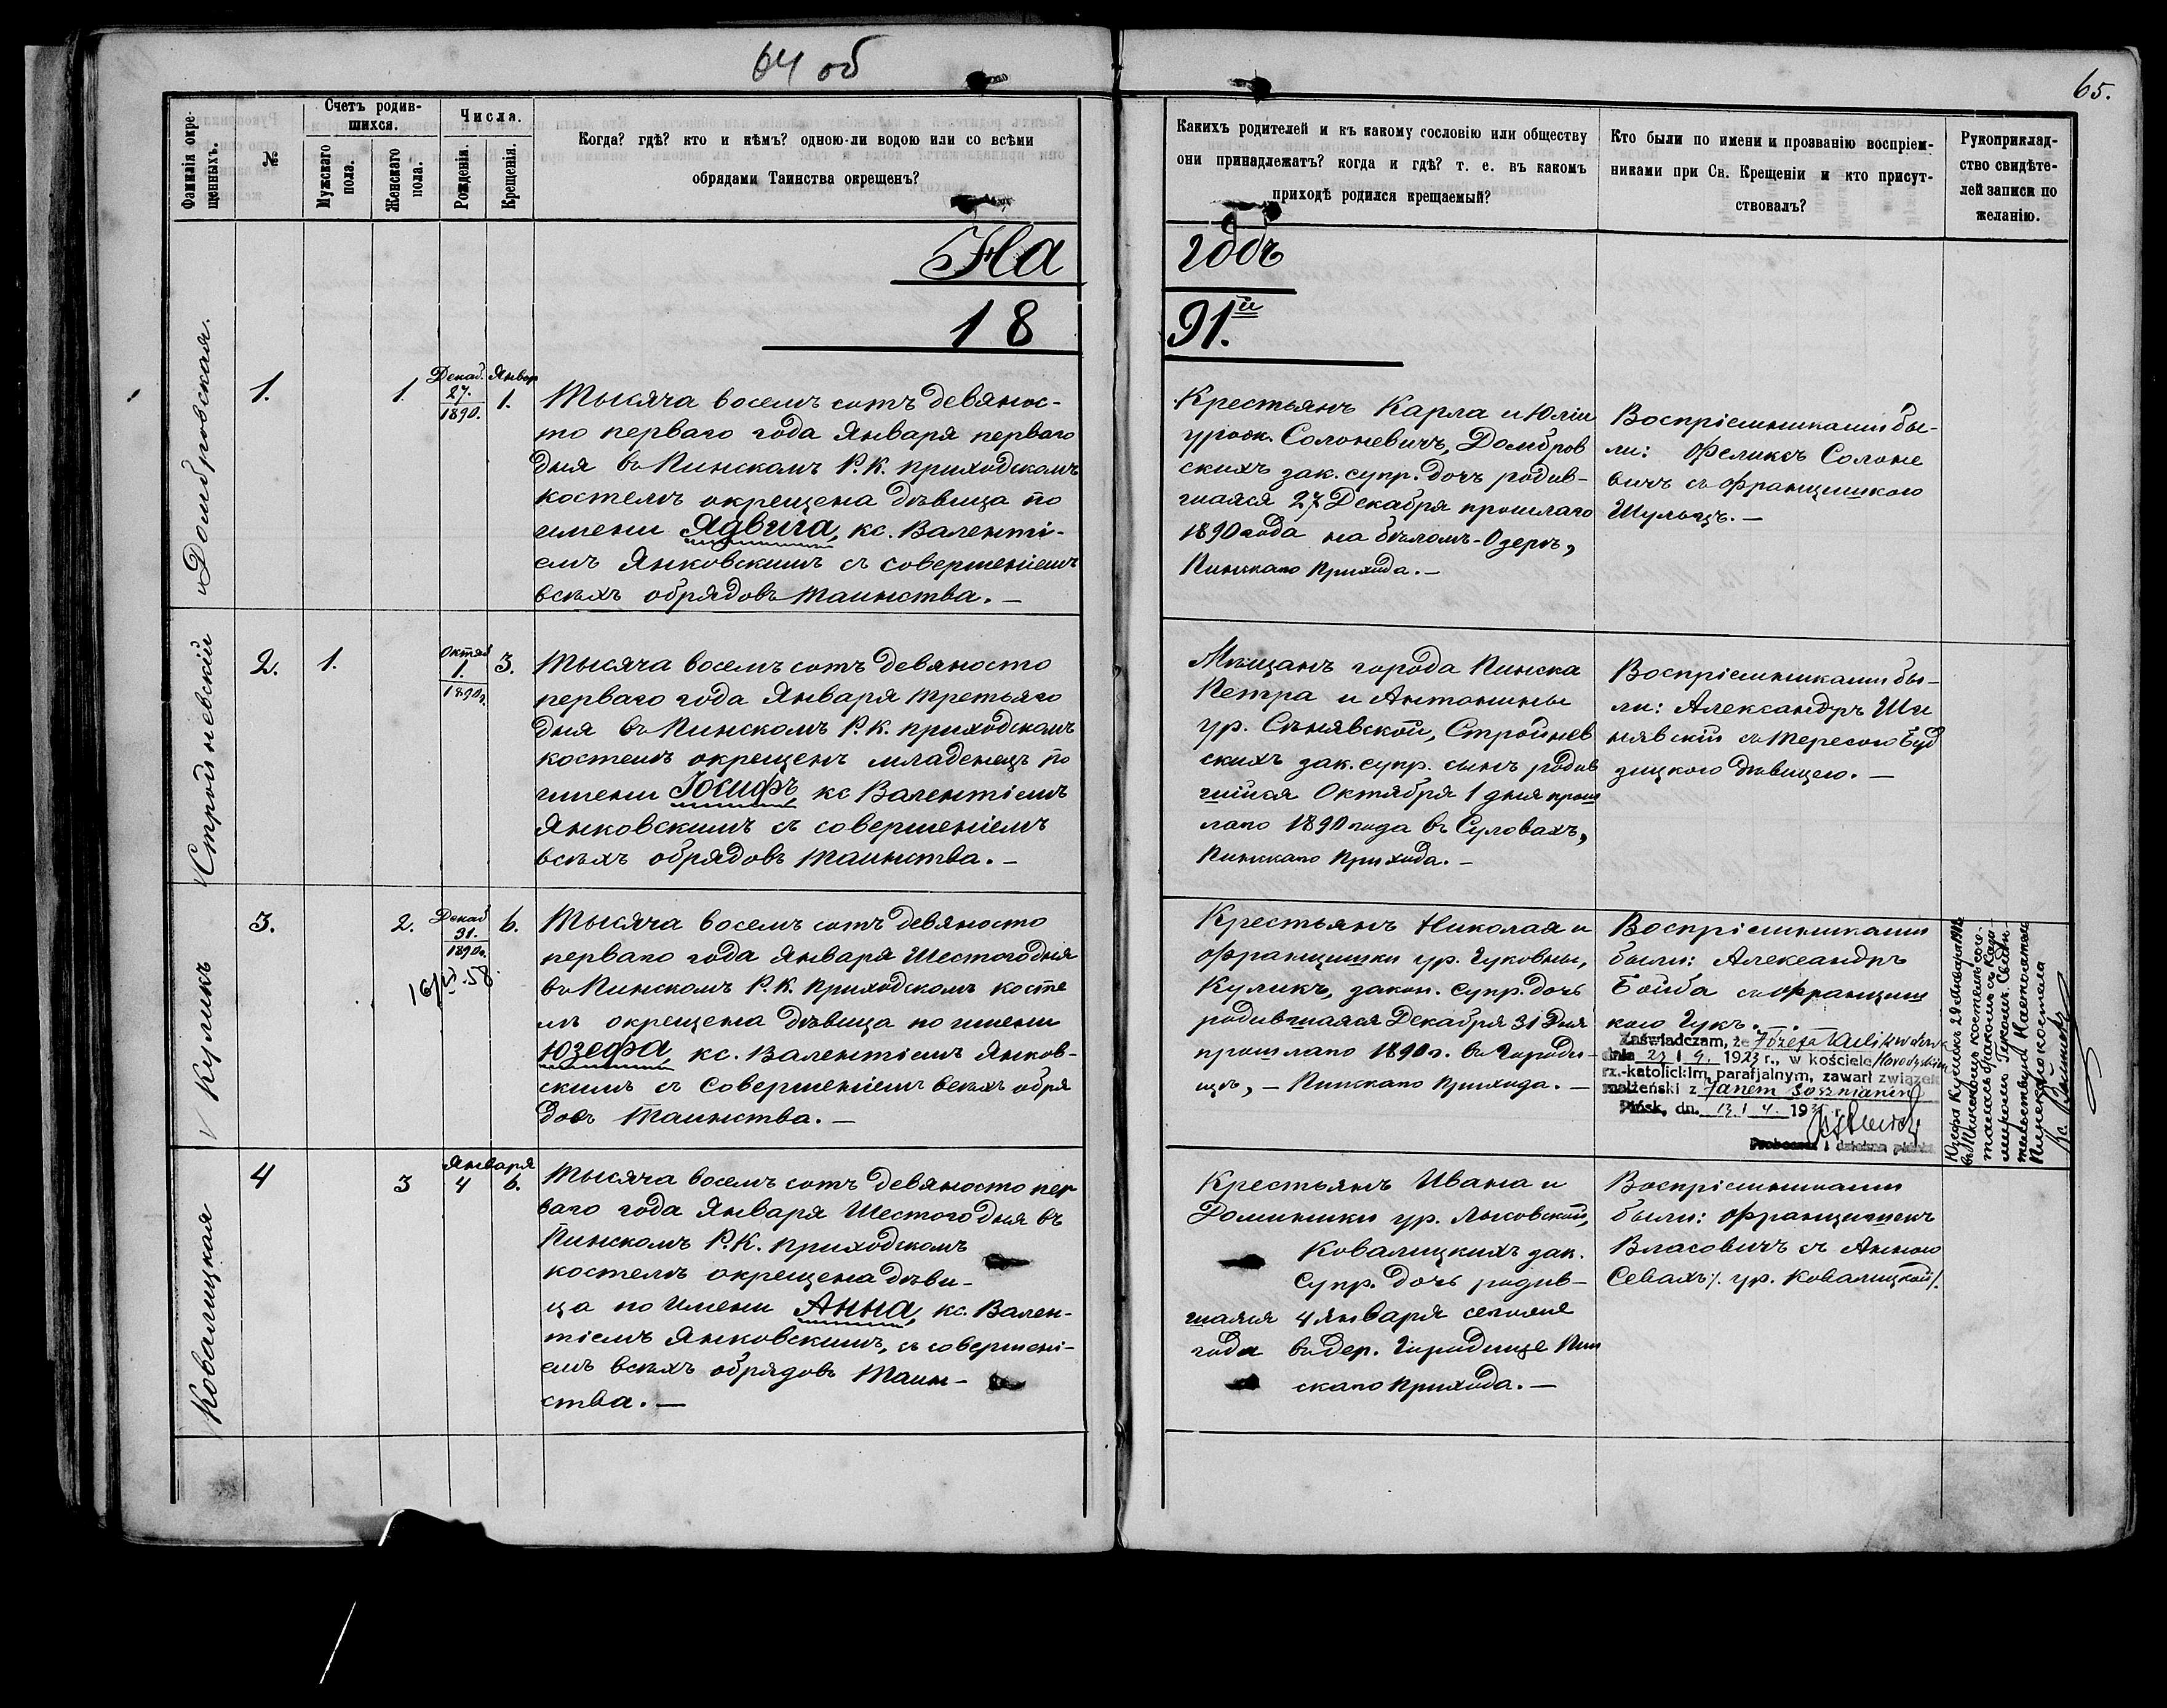 64 об
65.
Фамилія окре-
щенныхъ.
№
Счетъ родив-
шихся.
Мужскаго
пола.
Женскаго
пола.
Числа.
Рожденія.
Крещенія.
Когда? гдѣ? кто и кѣмъ? одною-ли водою или со всѣми
обрядами Таинства окрещенъ?
Какихъ родителей и къ какому сословію или обществу
они принадлежатъ? когда и гдѣ? т. е. въ какомъ
приходѣ родился крещаемый?
Кто были по имени и прозванію воспріем-
никами при Св. Крещеніи и кто присут-
ствовалъ?
Рукоприклад-
ство свидѣте-
лей записи по
желанію.
На
годъ
18
91.й
Домбровская.
1.
1.
Декаб.
27.
1890.
Январ
1.
Тысяча восемъ сотъ девянос-
то перваго года Января перваго
дня въ Пинскомъ Р. К. приходскомъ
костелѣ окрещена дѣвица по
имени Ядвига, кс. Валенті-
емъ Янковскимъ съ совершеніемъ
всѣхъ обрядовъ Таинства. —
Крестьянъ Карла и Юліи
урожд. Солоневичъ, Домбров
скихъ зак. супр. дочь родив-
шаяся 27 Декабря прошлаго
1890 года на бѣломъ-Озерѣ,
Пинскаго Прихода. —
Воспріемниками бы-
ли: Феликсъ Солоне
вичъ съ Францишкою
Шульцъ. —
Стройневскій
2.
1.
Октяб
1.
1890г.
3.
Тысяча восемъ сотъ девяносто
перваго года Января Третьяго
дня въ Пинскомъ Р. К. приходскомъ
костелѣ окрещенъ младенецъ по
имени Іосифъ кс Валентіемъ
Янковскимъ съ совершеніемъ
всѣхъ обрядовъ Таинства. —
Мѣщанъ города Пинска
Петра и Антонины
ур. Сѣнявской, Стройнев
скихъ зак. супр. сынъ родив
шійся Октября 1 дня прош
лаго 1890 года въ Суловахъ,
Пинскаго Прихода. —
Воспріемниками бы-
ли: Александръ Ши
нявскій съ Тересою Буд
зицкою дѣвицею. —
Куликъ
3.
2.
Декаб
31.
1890г.
6.
16/VI.58.
Тысяча восемъ сотъ девяносто
перваго года Января Шестого дня
въ Пинскомъ Р. К. Приходскомъ косте
лѣ окрещена дѣвица по имени
Юзефа, кс. Валентіемъ Янков-
скимъ съ совершеніемъ всѣхъ обря
довъ Таинства. —
Крестьянъ Николая и
Францишки ур. Гуковны,
Куликъ, закон. супр. дочь
родившаяся Декабря 31 Дня
прошлаго 1890 г. въ Городи-
щѣ, — Пинскаго Прихода. —
Воспріемниками
были: Александръ
Бойба съ Францишкою
Гукъ. —
Zaświadczam, że Józefa
dnia 23 1 9. 1923 r., w kościele
rz.-katolickim parafjalnym, zawarł związek
małżeński z Janem
Pińsk, dn. 19 r.
Proboszcz i dziekan piński
Юзефа Куликъ 29 Января
въ Пинскомъ костелѣ соче-
талась бракомъ съ Кази-
міромъ Гукомъ. Свидѣ-
тельствую Настоятель
Пинскаго костела
Ковалицкая
4
3
Января
4
6.
Тысяча восемъ сотъ девяносто пер
ваго года Января Шестого дня въ
Пинскомъ Р. К. приходскомъ
костелѣ окрещена дѣви-
ца по имени Анна, кс. Вален-
тіемъ Янковскимъ, съ совершені-
емъ всѣхъ обрядовъ Таин-
ства. —
Крестьянъ Ивана и
Доминики ур. Лысовской,
Ковалицкихъ зак.
супр. дочь родив-
шаяся 4 Января сего
года въ дер. Городище Пин
скаго Прихода. —
Воспріемниками
были: Францишекъ
Власовичъ съ Анною
Севахъ /. ур. Ковалицкой/.